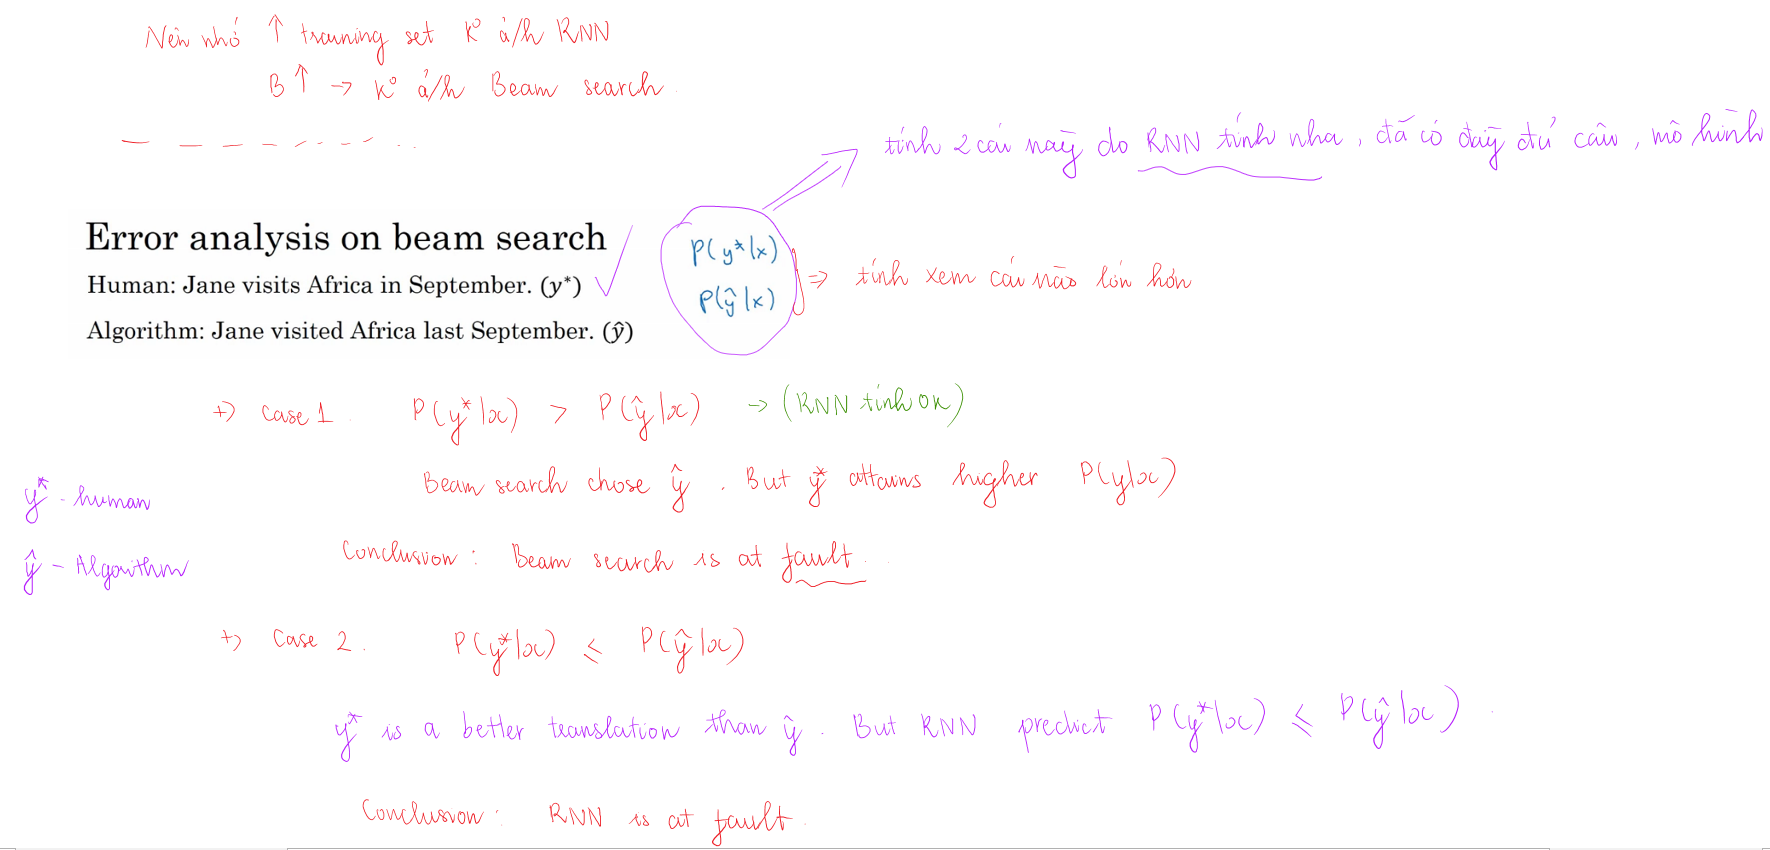 Nên nhớ ↑ training set k° ả/h RNN
B ↑ → k° ả/h Beam search
tính 2 cái này do RNN tính nha, đã có đầy đủ câu, mô hình
Error analysis on beam search
Human: Jane visits Africa in September. (y*)
Algorithm: Jane visited Africa last September. (ŷ)
P(y*|x)
P(ŷ|x)
⇒ tính xem cái nào lớn hơn
+) Case 1. P(y*|x) > P(ŷ|x) → (RNN tính ok)
Beam search chose ŷ. But y* attains higher P(y|x)
y* - human
ŷ - Algorithm
Conclusion: Beam search is at fault.
+) Case 2. P(y*|x) ≤ P(ŷ|x)
y* is a better translation than ŷ. But RNN predict P(y*|x) ≤ P(ŷ|x).
Conclusion: RNN is at fault.